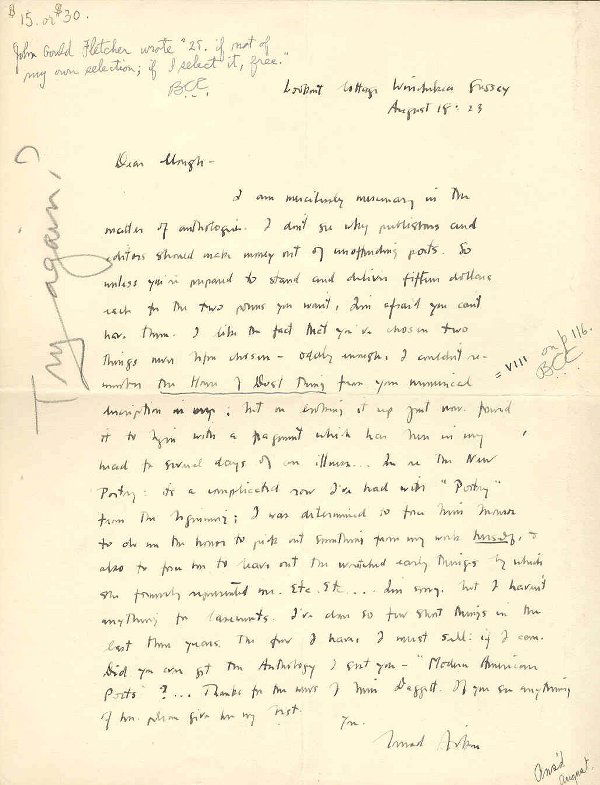 $15. or $30.
John Gould Fletcher wrote "25. if not of
my own selection; if I select it, free."
BCC
Lookout Cottage Winchelsea Sussex
August 18: 23
Try again?
Dear Clough -
I am mercilessly mercenary in the
matter of anthologies. I don't see why publishers and
editors should make money out of unoffending poets. So
unless you're prepared to stand and deliver fifteen dollars
each for the two poems you want, I'm afraid you can't
have them. I like the fact that you've chosen two
things never before chosen - oddly enough, I couldn't re-
member the House of Dust thing from your numerical
= VIII on p 116.
BCC
description ; but on looking it up just now found
it to begin with a fragment which has been in my
head for several days of an illness... In re the New
Poetry: it's a complicated row I've had with "Poetry"
from the beginning; I was determined to force Miss Monroe
to do me the honor to pick out something from my work herself, &
also to force her to leave out the wretched early things by which
she formerly represented me. Etc. Etc.... I'm sorry, but I haven't
anything for . I've done so few short things in the
last three years. The few I have, I must sell: if I can.
Did you ever get the Anthology I sent you - "Modern American
Poets"?... Thanks for the news of Miss Daggett. If you see anything
of her please give her my best.
Yrs.
Conrad Aiken
Ans'd
August.